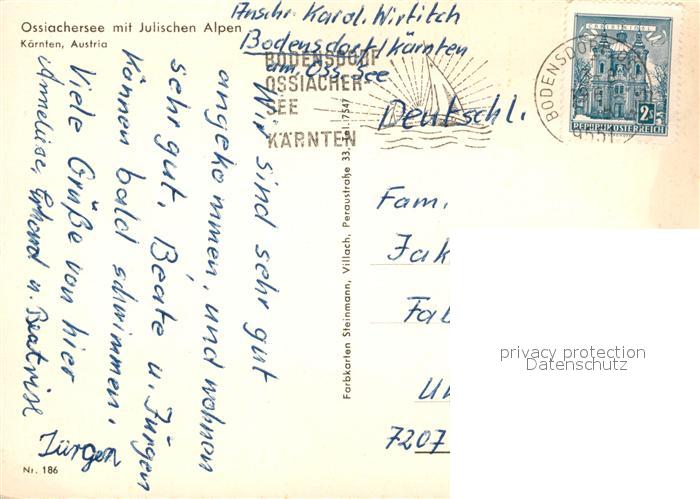 Ossiachersee mit Julischen Alpen
Kärnten, Austria
Anschr. Karol. Wirtitch
Bodensdorf/Kärnten
am Oss. See
BODENSDORF
OSSIACHER
SEE
KÄRNTEN
BODENSDORF
9551
CHRISTKINDL
2S
REPUBLIK ÖSTERREICH
Deutschl.
Wir sind sehr gut
angekommen, und wohnen
sehr gut. Beate u. Jürgen
können bald schwimmen.
Viele Grüße von hier
Anneliese, Erhard u. Beatrise
Jürgen
Farbkarten Steinmann, Villach, Peraustraße 33, Tel. 7547
Fam.
Jak
Fab
7207
Nr. 186
privacy protection
Datenschutz